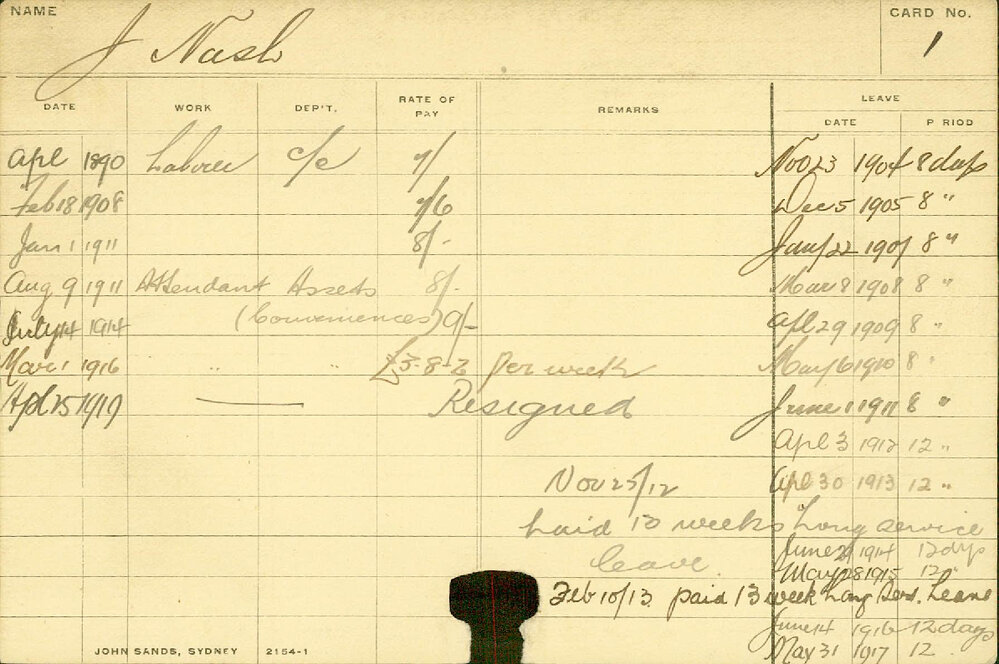 NAME
J Nash
CARD No.
1
DATE WORK DEP'T. RATE OF PAY REMARKS LEAVE
DATE P RIOD
Apl 1890 Labourer c/e 7/ Nov 23 1904 8 days
Feb 18 1908 7/6 Dec 5 1905 8 "
Jan 1 1911 8/- Jany 22 1907 8 "
Aug 9 1911 Attendant Assets 8/- Mar 8 1908 8 "
July 14 1914 (Conveniences) 9/- Apl 29 1909 8 "
Mar 1 1916 " " £3-8-2 Per week May 16 1910 8 "
Apl 25 1919 Resigned June 1 1911 8 "
Apl 3 1912 12 "
Nov 25/12 Apl 30 1913 12 "
Paid 13 weeks long service
leave.
June 1914 12 dys
May 28 1915 12 "
Feb 10/13 paid 13 week Long Serv. Leave
June 14 1916 12 days
May 31 1917 12
JOHN SANDS, SYDNEY 2154-1